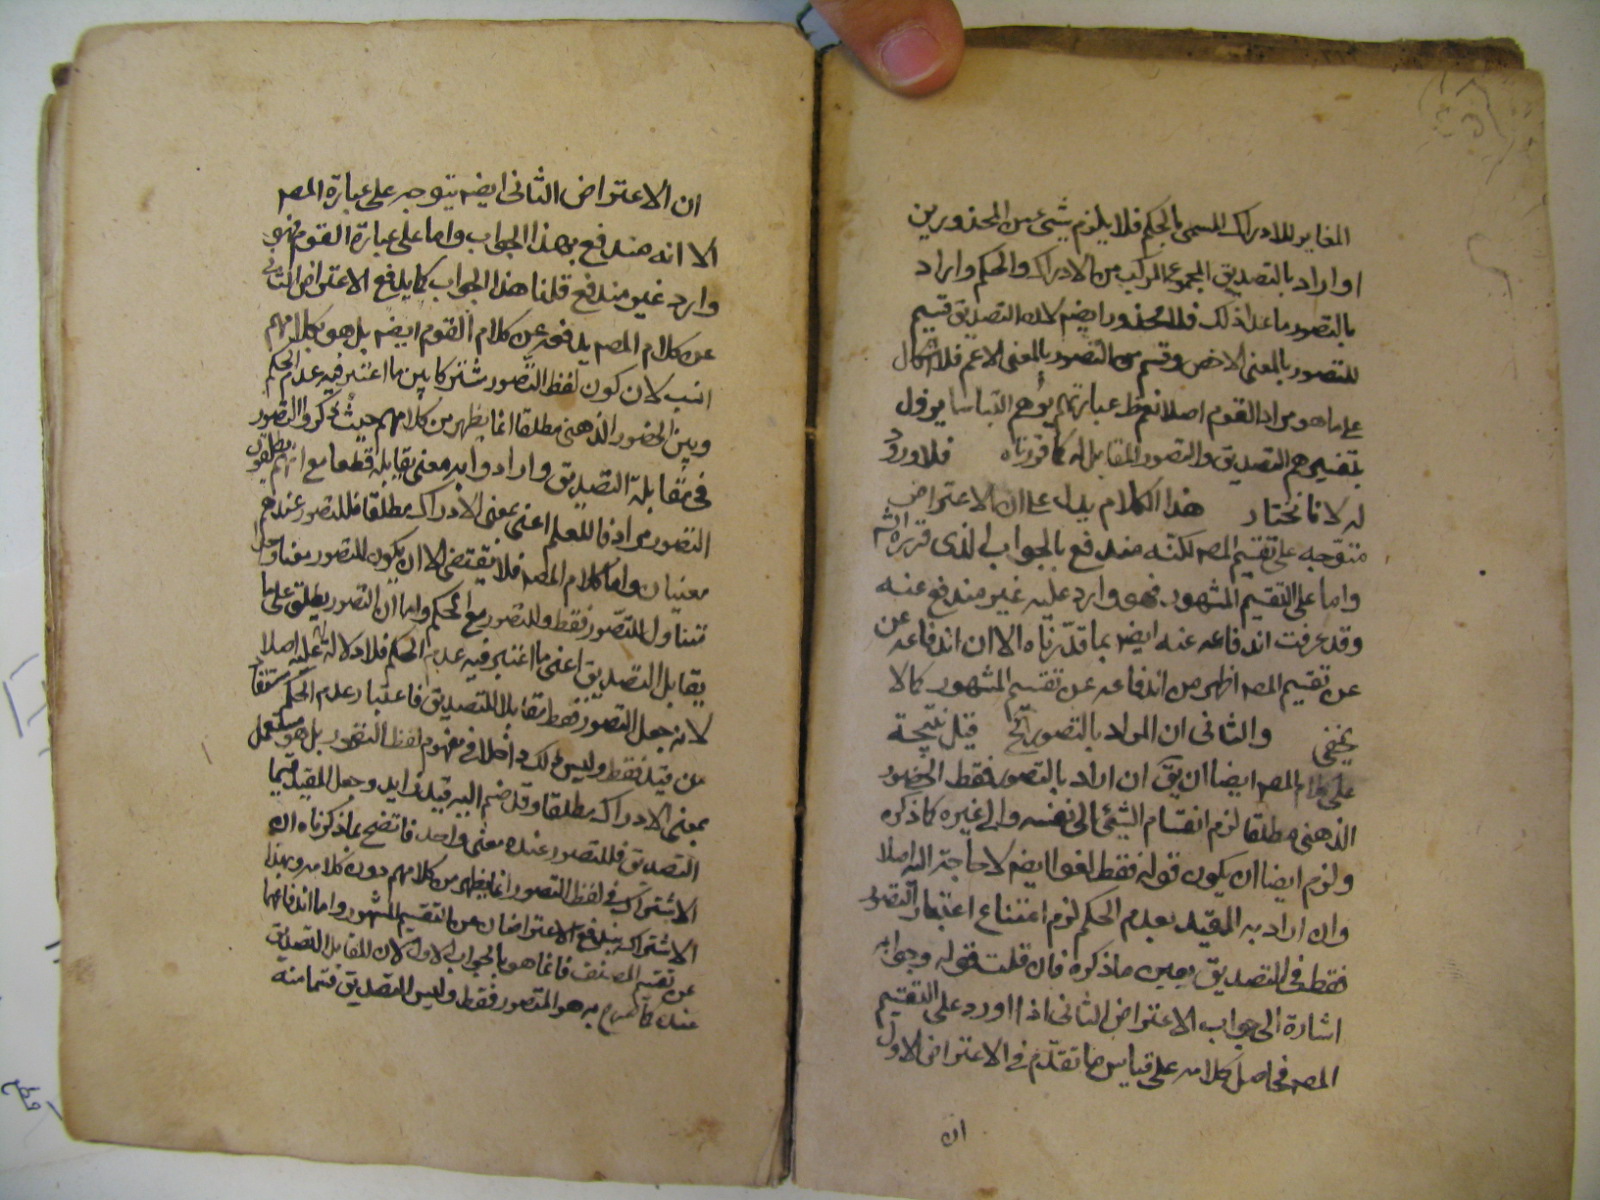 المغاير للادراك المسمى بالحكم فلا يلزم شئ من المحذورين
او اراد بالتصديق المجموع المركب من الادراك والحكم واراد
بالتصور ما عدا ذلك فلا محذور ايضه لان التصديق قسيم
للتصور بالمعنى الاخص وقسم من التصور بالمعنى الاعم فلا اشكال
على ما هو مراد القوم اصلا نعم ظ عبارتهم يوهم التباسا يزول
بتفسيرهم التصديق والتصور المقابل له كما قررناه فلا ورود
له لانا نختار هذا الكلام يدل على ان الاعتراض
متوجه على تقسيم المصه لكنه مندفع بالجواب الذى قرره الشه
واما على التقسيم المشهور فهو وارد عليه غير مندفع عنه
وقد عرفت اندفاعه عنه ايضه بما قررناه الا ان اندفاعه عن
عن تقسيم المصه اظهر من اندفاعه عن تقسيم المشهور كما لا
يخفى والثانى ان المراد بالتصور الخ قيل نتيجة
على كلام المصه ايضا ان يق ان اراد بالتصور فقط الحضور
الذهنى مطلقا لزم انقسام الشئ الى نفسه والى غيره كما ذكره
ولزم ايضا ان يكون قوله فقط لغوا ايضه لا حاجة اليه اصلا
وان اراد به المقيد بعدم الحكم لزم امتناع اعتبار التصور
فقط فى التصديق بعين ما ذكره فان قلت قوله وجوابه
اشارة الى جواب الاعتراض الثانى اذا اورد على التقسيم
المصه فحاصل كلامه على قياس ما تقدم فى الاعتراض الاول
ان
ان الاعتراض الثانى ايضه يتوجه على عبارة المصه
الا انه مندفع بهذا الجواب واما على عبارة القوم فهو
وارد غير مندفع قلنا هذا الجواب كما يدفع الاعتراض الثانى
عن كلام المصه يدفعه عن كلام القوم ايضه بل هو بكلامهم
انسب لان كون لفظ التصور مشتركا بين ما اعتبر فيه عدم الحكم
وبين الحضور الذهنى مطلقا انما يظهر من كلامهم حيث ذكروا التصور
فى مقابلة التصديق وارادوا به معنى يقابله قطعا مع انهم يطلقون
التصور مرادفا للعلم اعنى بمعنى الادراك مطلقا فللتصور عندهم
معنيان واما كلام المصه فلا يقتضى الا ان يكون للتصور معنا واحد
متناول للتصور فقط وللتصور مع الحكم واما ان التصور يطلق على ما
يقابل التصديق اعنى ما اعتبر فيه عدم الحكم فلا دلالة له عليه اصلا
لانه جعل التصور فقط مقابلا للتصديق فاعتبار عدم الحكم مستفاد
من قيد فقط وليس ذلك داخلا فى مفهوم لفظ التصور بل هو مستعمل
بمعنى الادراك مطلقا وقد ضم اليه قيد زايد وجعل المقيد قسيما
التصديق فللتصور عنده معنى واحد فاتضح بما ذكرناه ان
الاشتراك فى لفظ التصور انما يظهر من كلامهم دون كلامه وبهذا
الاشتراك يندفع الاعتراضان عن التقسيم المشهور واما اندفاعهما
عن تقسيم المصنف فانما هو بالجواب الاول لان المقابل التصديق
عنده كما صرح به هو التصور فقط وليس التصديق قسما منه